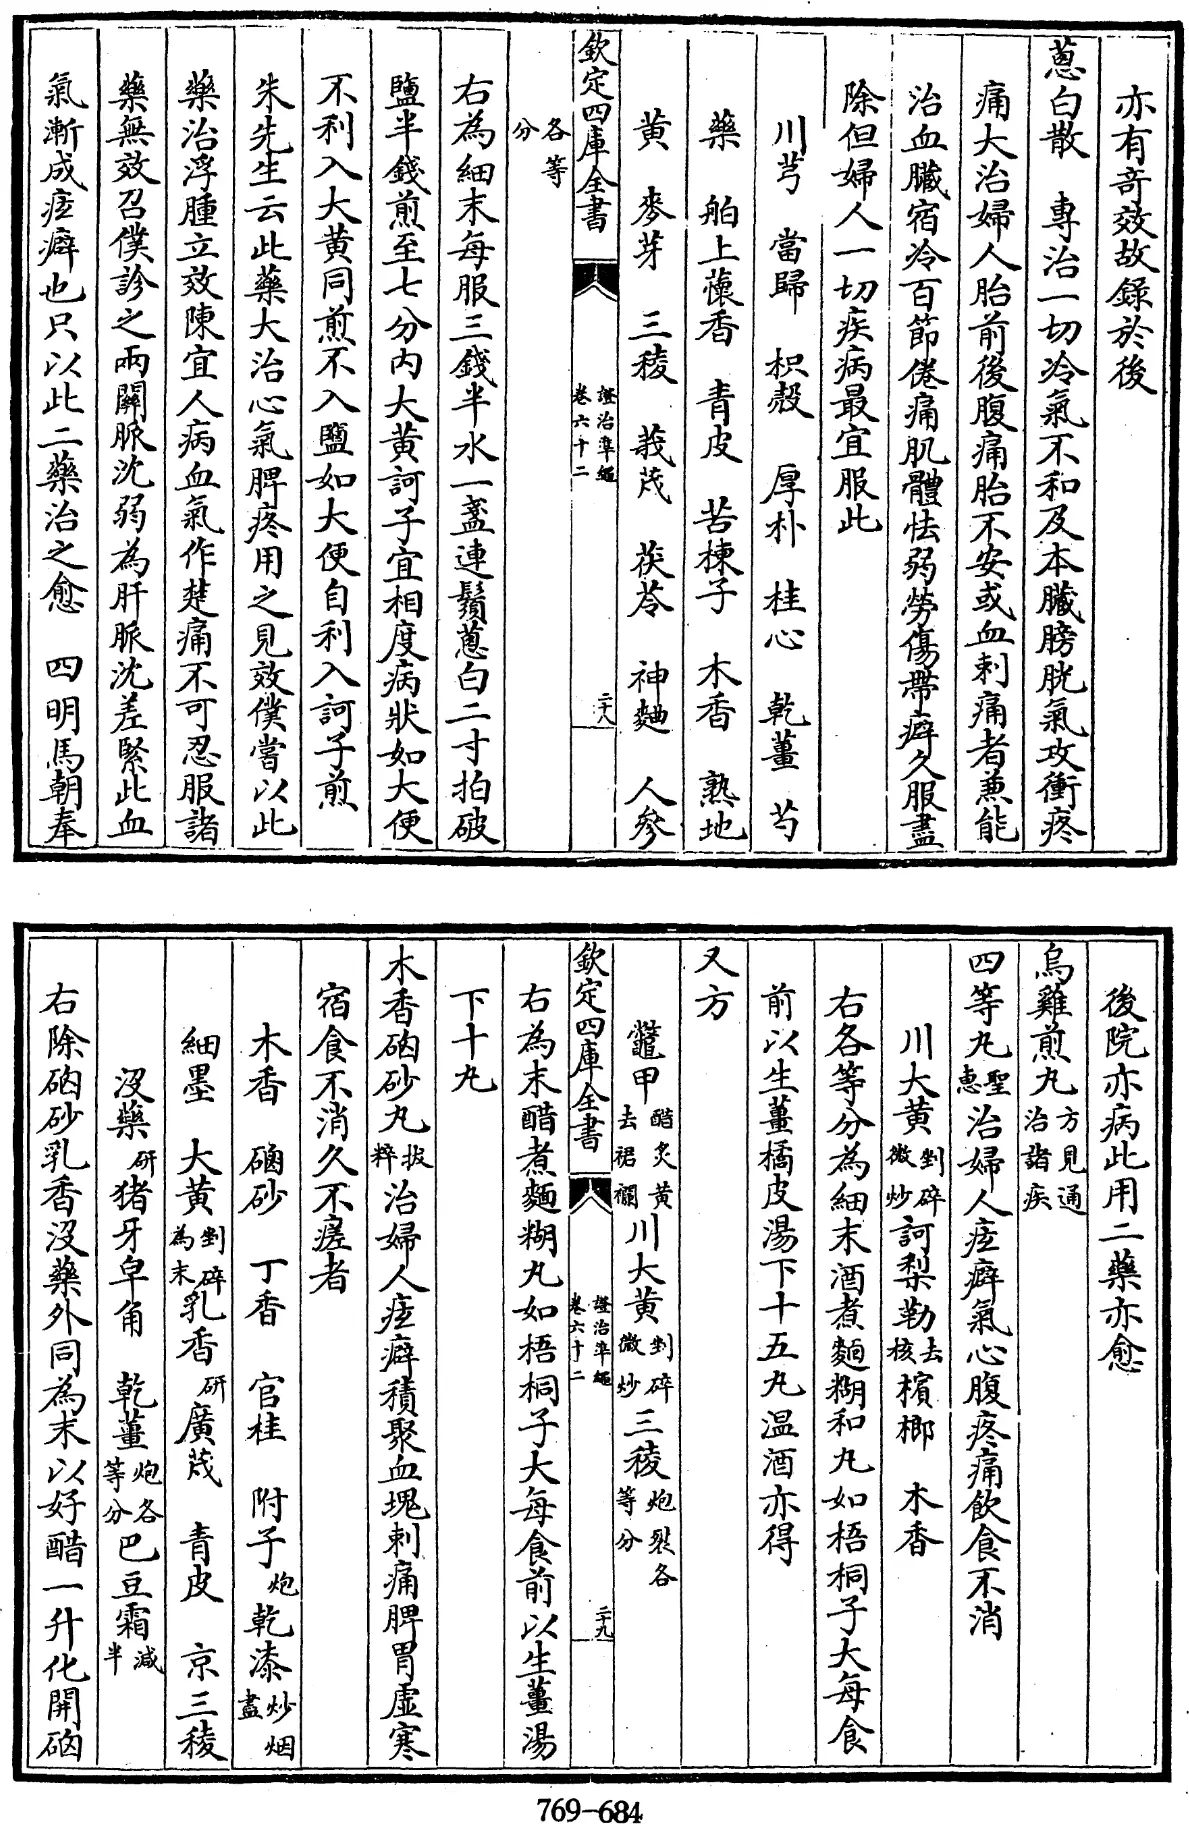 亦有竒效故録於後
蔥白散　專治一切冷氣不和及本臟膀胱氣攻衝疼
痛大治婦人胎前後腹痛胎不安或血刺痛者兼能
治血臟宿冷百節倦痛肌體怯弱勞傷帶癖久服盡
除但婦人一切疾病最宜服此
川芎　當歸　枳殻　厚朴　桂心　乾薑　芍
藥　舶上懷香　青皮　苦楝子　木香　熟地
黄　麥芽　三稜　莪茂　茯苓　神麯　人參
欽定四庫全書　證治準繩卷六十二　二十八
各等分
右為細末每服三錢半水一盞連鬚蔥白二寸拍破
鹽半錢煎至七分内大黄訶子宜相度病狀如大便
不利入大黄同煎不入鹽如大便自利入訶子煎
朱先生云此藥大治心氣脾疼用之見效僕嘗以此
藥治浮腫立效陳宜人病血氣作楚痛不可忍服諸
藥無效召僕診之兩關脈沈弱為肝脈沈差緊此血
氣漸成痃癖也只以此二藥治之愈　四明馬朝奉
後院亦病此用二藥亦愈
烏雞煎丸方見通治諸疾
四等丸聖惠治婦人痃癖氣心腹疼痛飲食不消
川大黄剉碎微炒訶梨勒去核檳榔　木香
右各等分為細末酒煮麵糊和丸如梧桐子大每食
前以生薑橘皮湯下十五丸温酒亦得
又方
鼈甲醋炙黄去裙襴川大黄剉碎微炒三稜炮裂各等分
欽定四庫全書　證治準繩卷六十二　二十九
右為末醋煮麵糊丸如梧桐子大每食前以生薑湯
下十丸
木香硇砂丸拔粹治婦人痃癖積聚血塊刺痛脾胃虚寒
宿食不消久不瘥者
木香　硇砂　丁香　官桂　附子炮乾漆炒烟盡
細墨　大黄剉碎為末乳香研廣茂　青皮　京三稜
沒藥研猪牙皁角　乾薑炮各等分巴豆霜減半
右除硇砂乳香沒藥外同為末以好醋一升化開硇
769-684